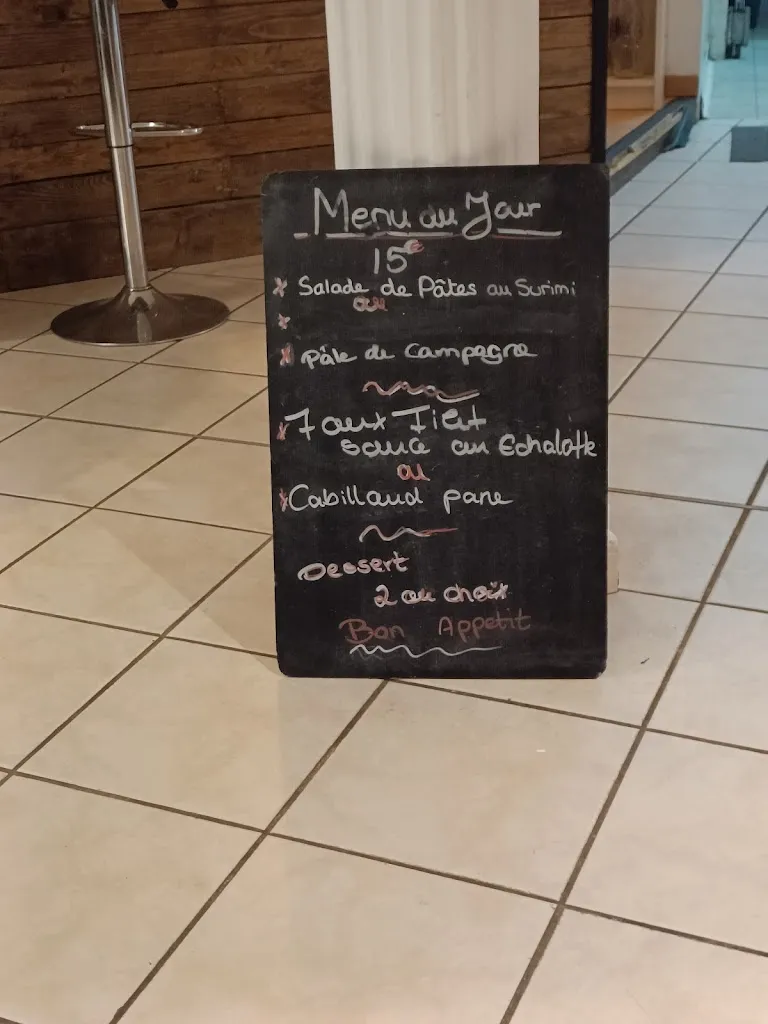 Menu du Jour
15€
x Salade de Pâtes au Surimi
ou
x
x Pâte de Campagne
x Faux Filet
sauce au Echalotte
ou
x Cabillaud pane
Dessert
2 au choix
Bon Appetit